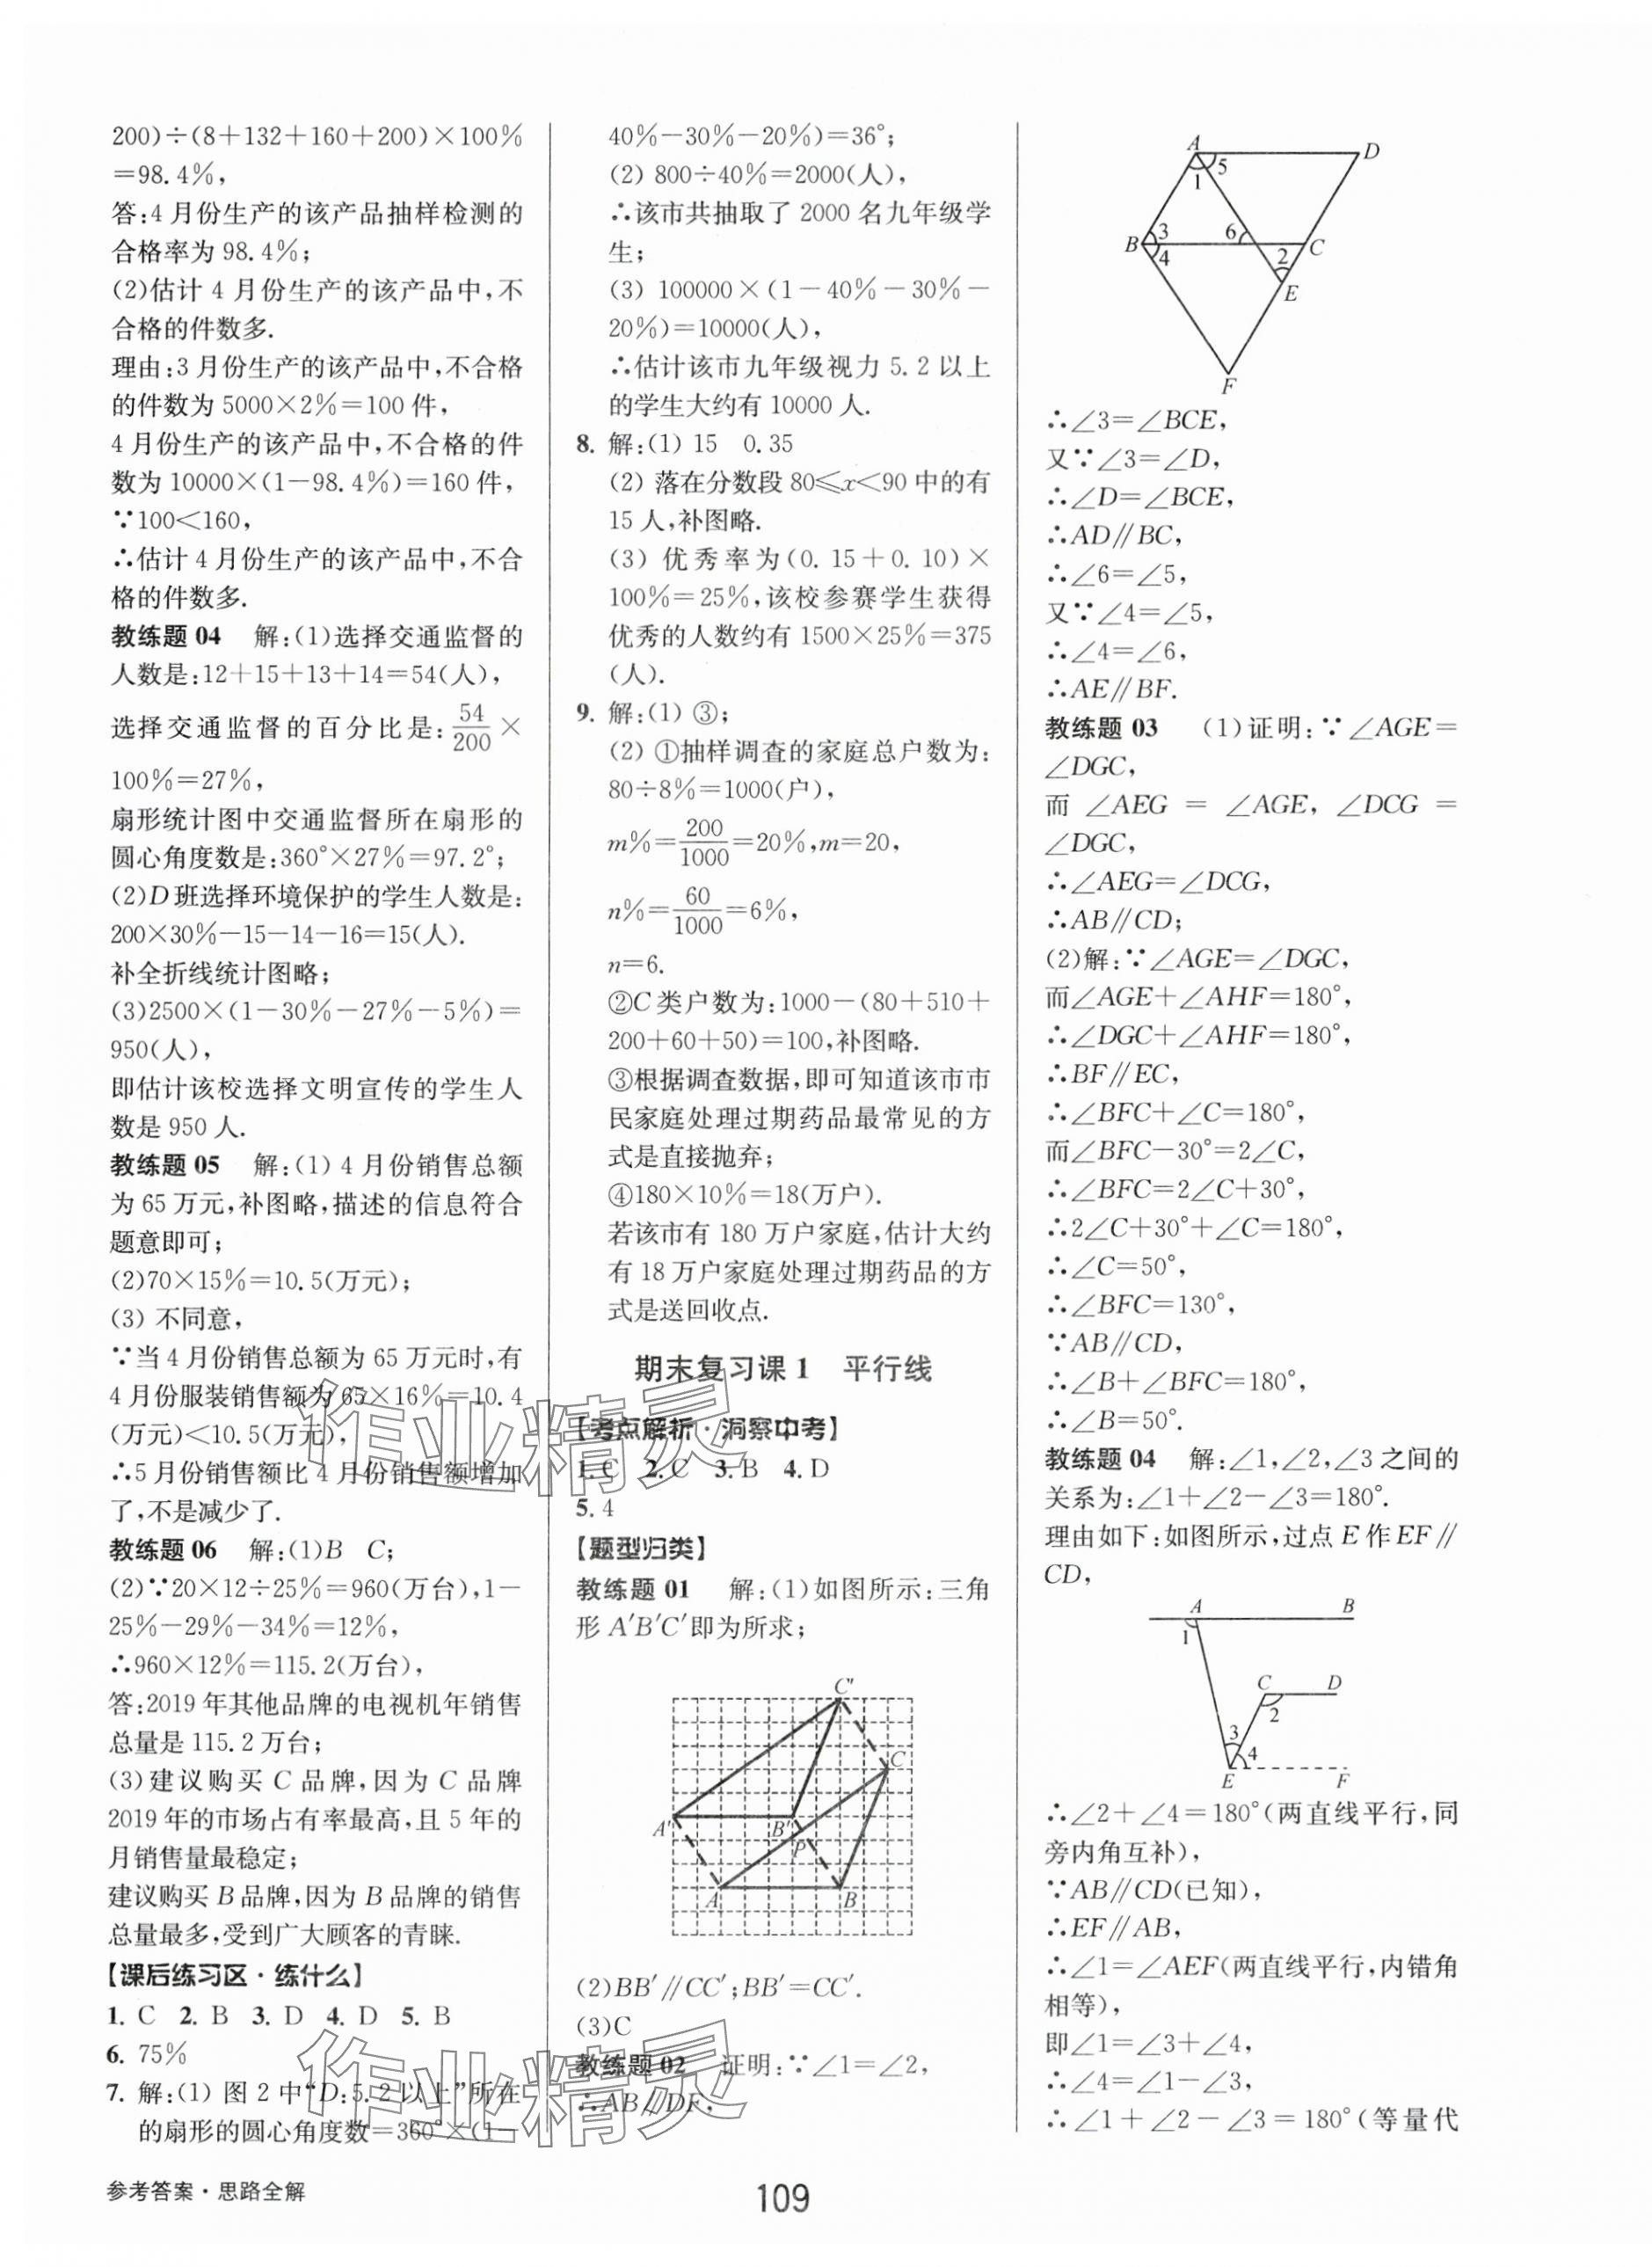 200)÷(8+132+160+200)×100%
=98.4%,
答:4月份生产的该产品抽样检测的
合格率为98.4%;
(2)估计4月份生产的该产品中,不
合格的件数多.
理由:3月份生产的该产品中,不合格
的件数为5000×2%=100件,
4月份生产的该产品中,不合格的件
数为10000×(1-98.4%)=160件,
∵100<160,
∴估计4月份生产的该产品中,不合
格的件数多.
教练题04 解:(1)选择交通监督的
人数是:12+15+13+14=54(人),
选择交通监督的百分比是:54/200×
100%=27%,
扇形统计图中交通监督所在扇形的
圆心角度数是:360°×27%=97.2°;
(2)D班选择环境保护的学生人数是:
200×30%-15-14-16=15(人).
补全折线统计图略;
(3)2500×(1-30%-27%-5%)=
950(人),
即估计该校选择文明宣传的学生人
数是950人.
教练题05 解:(1)4月份销售总额
为65万元,补图略,描述的信息符合
题意即可;
(2)70×15%=10.5(万元);
(3) 不同意,
∵当4月份销售总额为65万元时,有
4月份服装销售额为65×16%=10.4
(万元)<10.5(万元),
∴5月份销售额比4月份销售额增加
了,不是减少了.
教练题06 解:(1)B C;
(2)∵20×12÷25%=960(万台),1-
25%-29%-34%=12%,
∴960×12%=115.2(万台),
答:2019年其他品牌的电视机年销售
总量是115.2万台;
(3)建议购买C品牌,因为C品牌
2019年的市场占有率最高,且5年的
月销售量最稳定;
建议购买B品牌,因为B品牌的销售
总量最多,受到广大顾客的青睐.
【课后练习区·练什么】
1. C 2. B 3. D 4. D 5. B
6. 75%
7. 解:(1) 图2中“D:5.2以上”所在
的扇形的圆心角度数=360°×(1-
40%-30%-20%)=36°;
(2) 800÷40%=2000(人),
∴该市共抽取了2000名九年级学
生;
(3) 100000×(1-40%-30%-
20%)=10000(人),
∴估计该市九年级视力5.2以上
的学生大约有10000人.
8. 解:(1) 15 0.35
(2) 落在分数段80≤x<90中的有
15人,补图略.
(3) 优秀率为(0.15+0.10)×
100%=25%,该校参赛学生获得
优秀的人数约有1500×25%=375
(人).
9. 解:(1) ③;
(2) ①抽样调查的家庭总户数为:
80÷8%=1000(户),
m%=200/1000=20%,m=20,
n%=60/1000=6%,
n=6.
②C类户数为:1000-(80+510+
200+60+50)=100,补图略.
③根据调查数据,即可知道该市市
民家庭处理过期药品最常见的方
式是直接抛弃;
④180×10%=18(万户).
若该市有180万户家庭,估计大约
有18万户家庭处理过期药品的方
式是送回收点.
期末复习课1 平行线
【考点解析·洞察中考】
1. C 2. C 3. B 4. D
5. 4
【题型归类】
教练题01 解:(1)如图所示:三角
形A′B′C′即为所求;
C″
C
A′
B′
P
A
B
(2)BB′∥CC′;BB′=CC′.
(3)C
教练题02 证明:∵∠1=∠2,
∴AB∥DF,
A
D
5
1
B
3
4
6
2
C
E
F
∴∠3=∠BCE,
又∵∠3=∠D,
∴∠D=∠BCE,
∴AD∥BC,
∴∠6=∠5,
又∵∠4=∠5,
∴∠4=∠6,
∴AE∥BF.
教练题03 (1)证明:∵∠AGE=
∠DGC,
而∠AEG=∠AGE,∠DCG=
∠DGC,
∴∠AEG=∠DCG,
∴AB∥CD;
(2)解:∵∠AGE=∠DGC,
而∠AGE+∠AHF=180°,
∴∠DGC+∠AHF=180°,
∴BF∥EC,
∴∠BFC+∠C=180°,
而∠BFC-30°=2∠C,
∴∠BFC=2∠C+30°,
∴2∠C+30°+∠C=180°,
∴∠C=50°,
∴∠BFC=130°,
∵AB∥CD,
∴∠B+∠BFC=180°,
∴∠B=50°.
教练题04 解:∠1,∠2,∠3之间的
关系为:∠1+∠2-∠3=180°.
理由如下:如图所示,过点E作EF∥
CD,
A
B
1
C
D
2
3
4
E
F
∴∠2+∠4=180°(两直线平行,同
旁内角互补),
∵AB∥CD(已知),
∴EF∥AB,
∴∠1=∠AEF(两直线平行,内错角
相等),
即∠1=∠3+∠4,
∴∠4=∠1-∠3,
∴∠1+∠2-∠3=180°(等量代
作业精灵
作业精灵
参考答案·思路全解
109